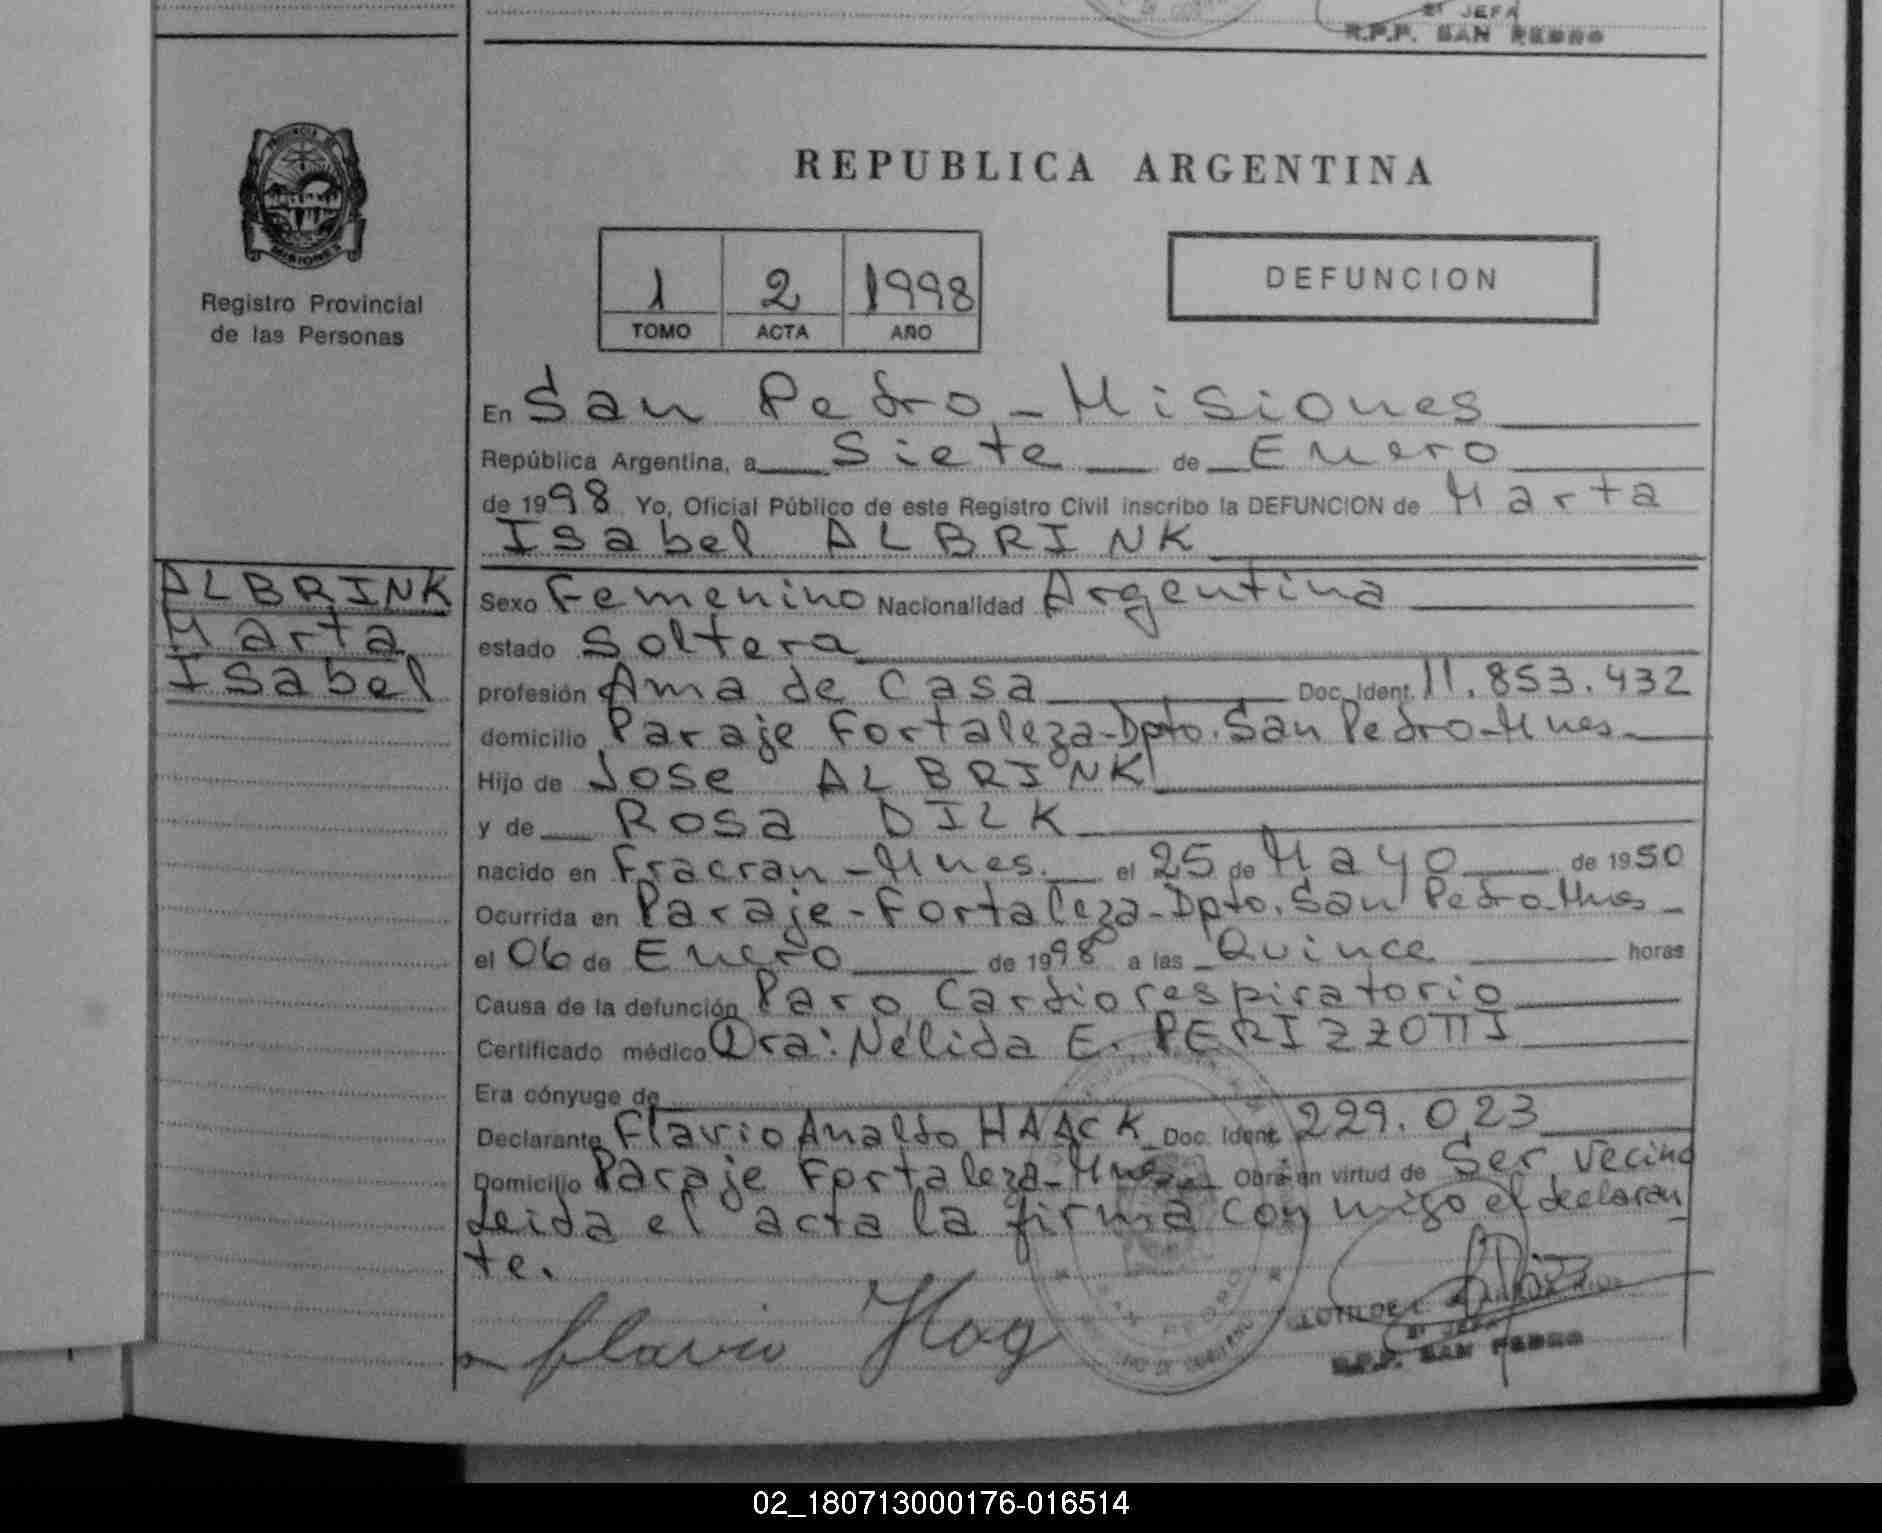 2º JEFA
R.P.P. SAN PEDRO
PROVINCIA DE
MISIONES
Registro Provincial
de las Personas
REPUBLICA ARGENTINA
1 2 1998
TOMO ACTA AÑO
DEFUNCION
En San Pedro - Misiones
República Argentina, a Siete de Enero
de 1998 Yo, Oficial Público de este Registro Civil inscribo la DEFUNCION de Marta
Isabel ALBRINK
ALBRINK
Marta
Isabel
Sexo Femenino Nacionalidad Argentina
estado Soltera
profesión Ama de Casa Doc. Ident. 11.853.432
domicilio Paraje Fortaleza-Dpto. San Pedro-Mnes.
Hijo de Jose ALBRINK
y de Rosa DILK
nacido en Fracran - Mnes. el 25 de Mayo de 1950
Ocurrida en Paraje - Fortaleza-Dpto. San Pedro-Mnes
el 06 de Enero de 1998 a las Quince horas
Causa de la defunción Paro Cardiorespiratorio
Certificado médico Dra: Nélida E. PERIZZOTTI
Era cónyuge de
Declarante Flavio Analdo HAACK Doc. Ident. 229.023
Domicilio Paraje Fortaleza-Mnes. Obra en virtud de Ser Vecino
Leida el acta la firma con migo el declaran
te.
flavio Hag
2º JEFA
R.P.P. SAN PEDRO
02_180713000176-016514